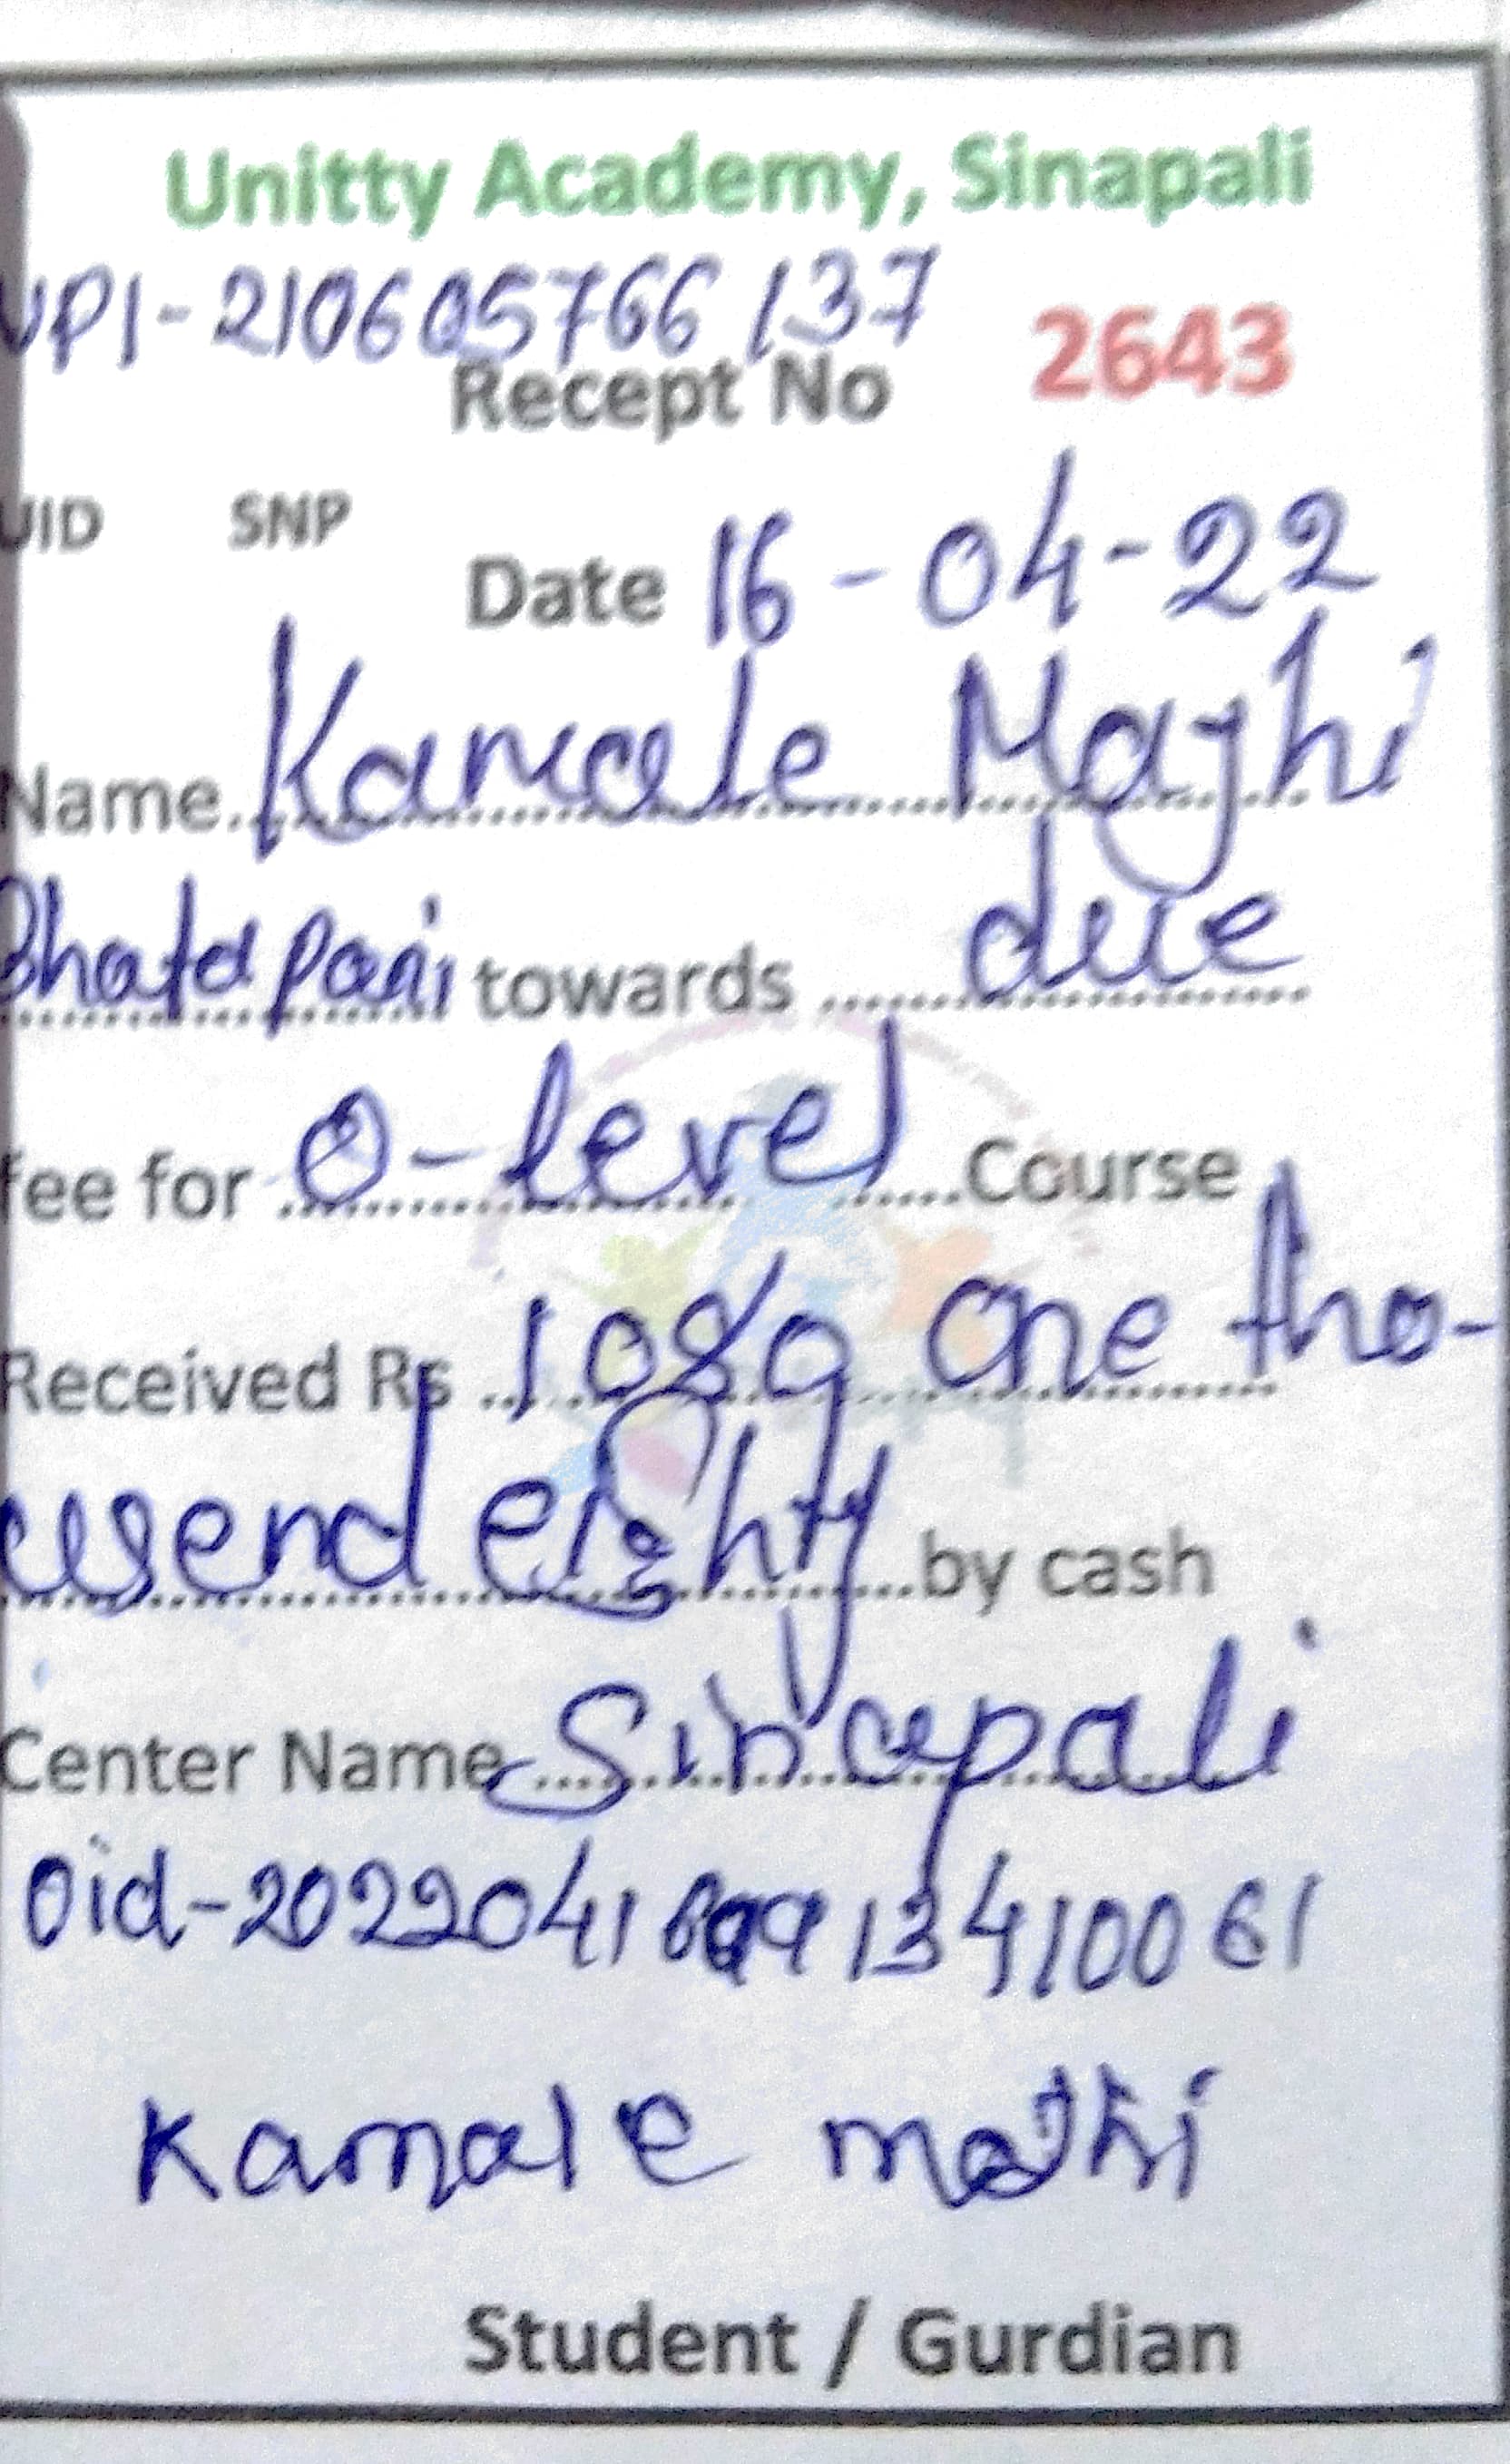 Unitty Academy, Sinapali
UPI-210605766137
Recept No 2643
UID SNP
Date 16-04-22
Name Kamale Majhi
Bhatapani towards due
fee for O-level Course
Received Rs 1080 one tho-
usend eighty by cash
Center Name Sinapali
Kamale majhi
Student / Gurdian